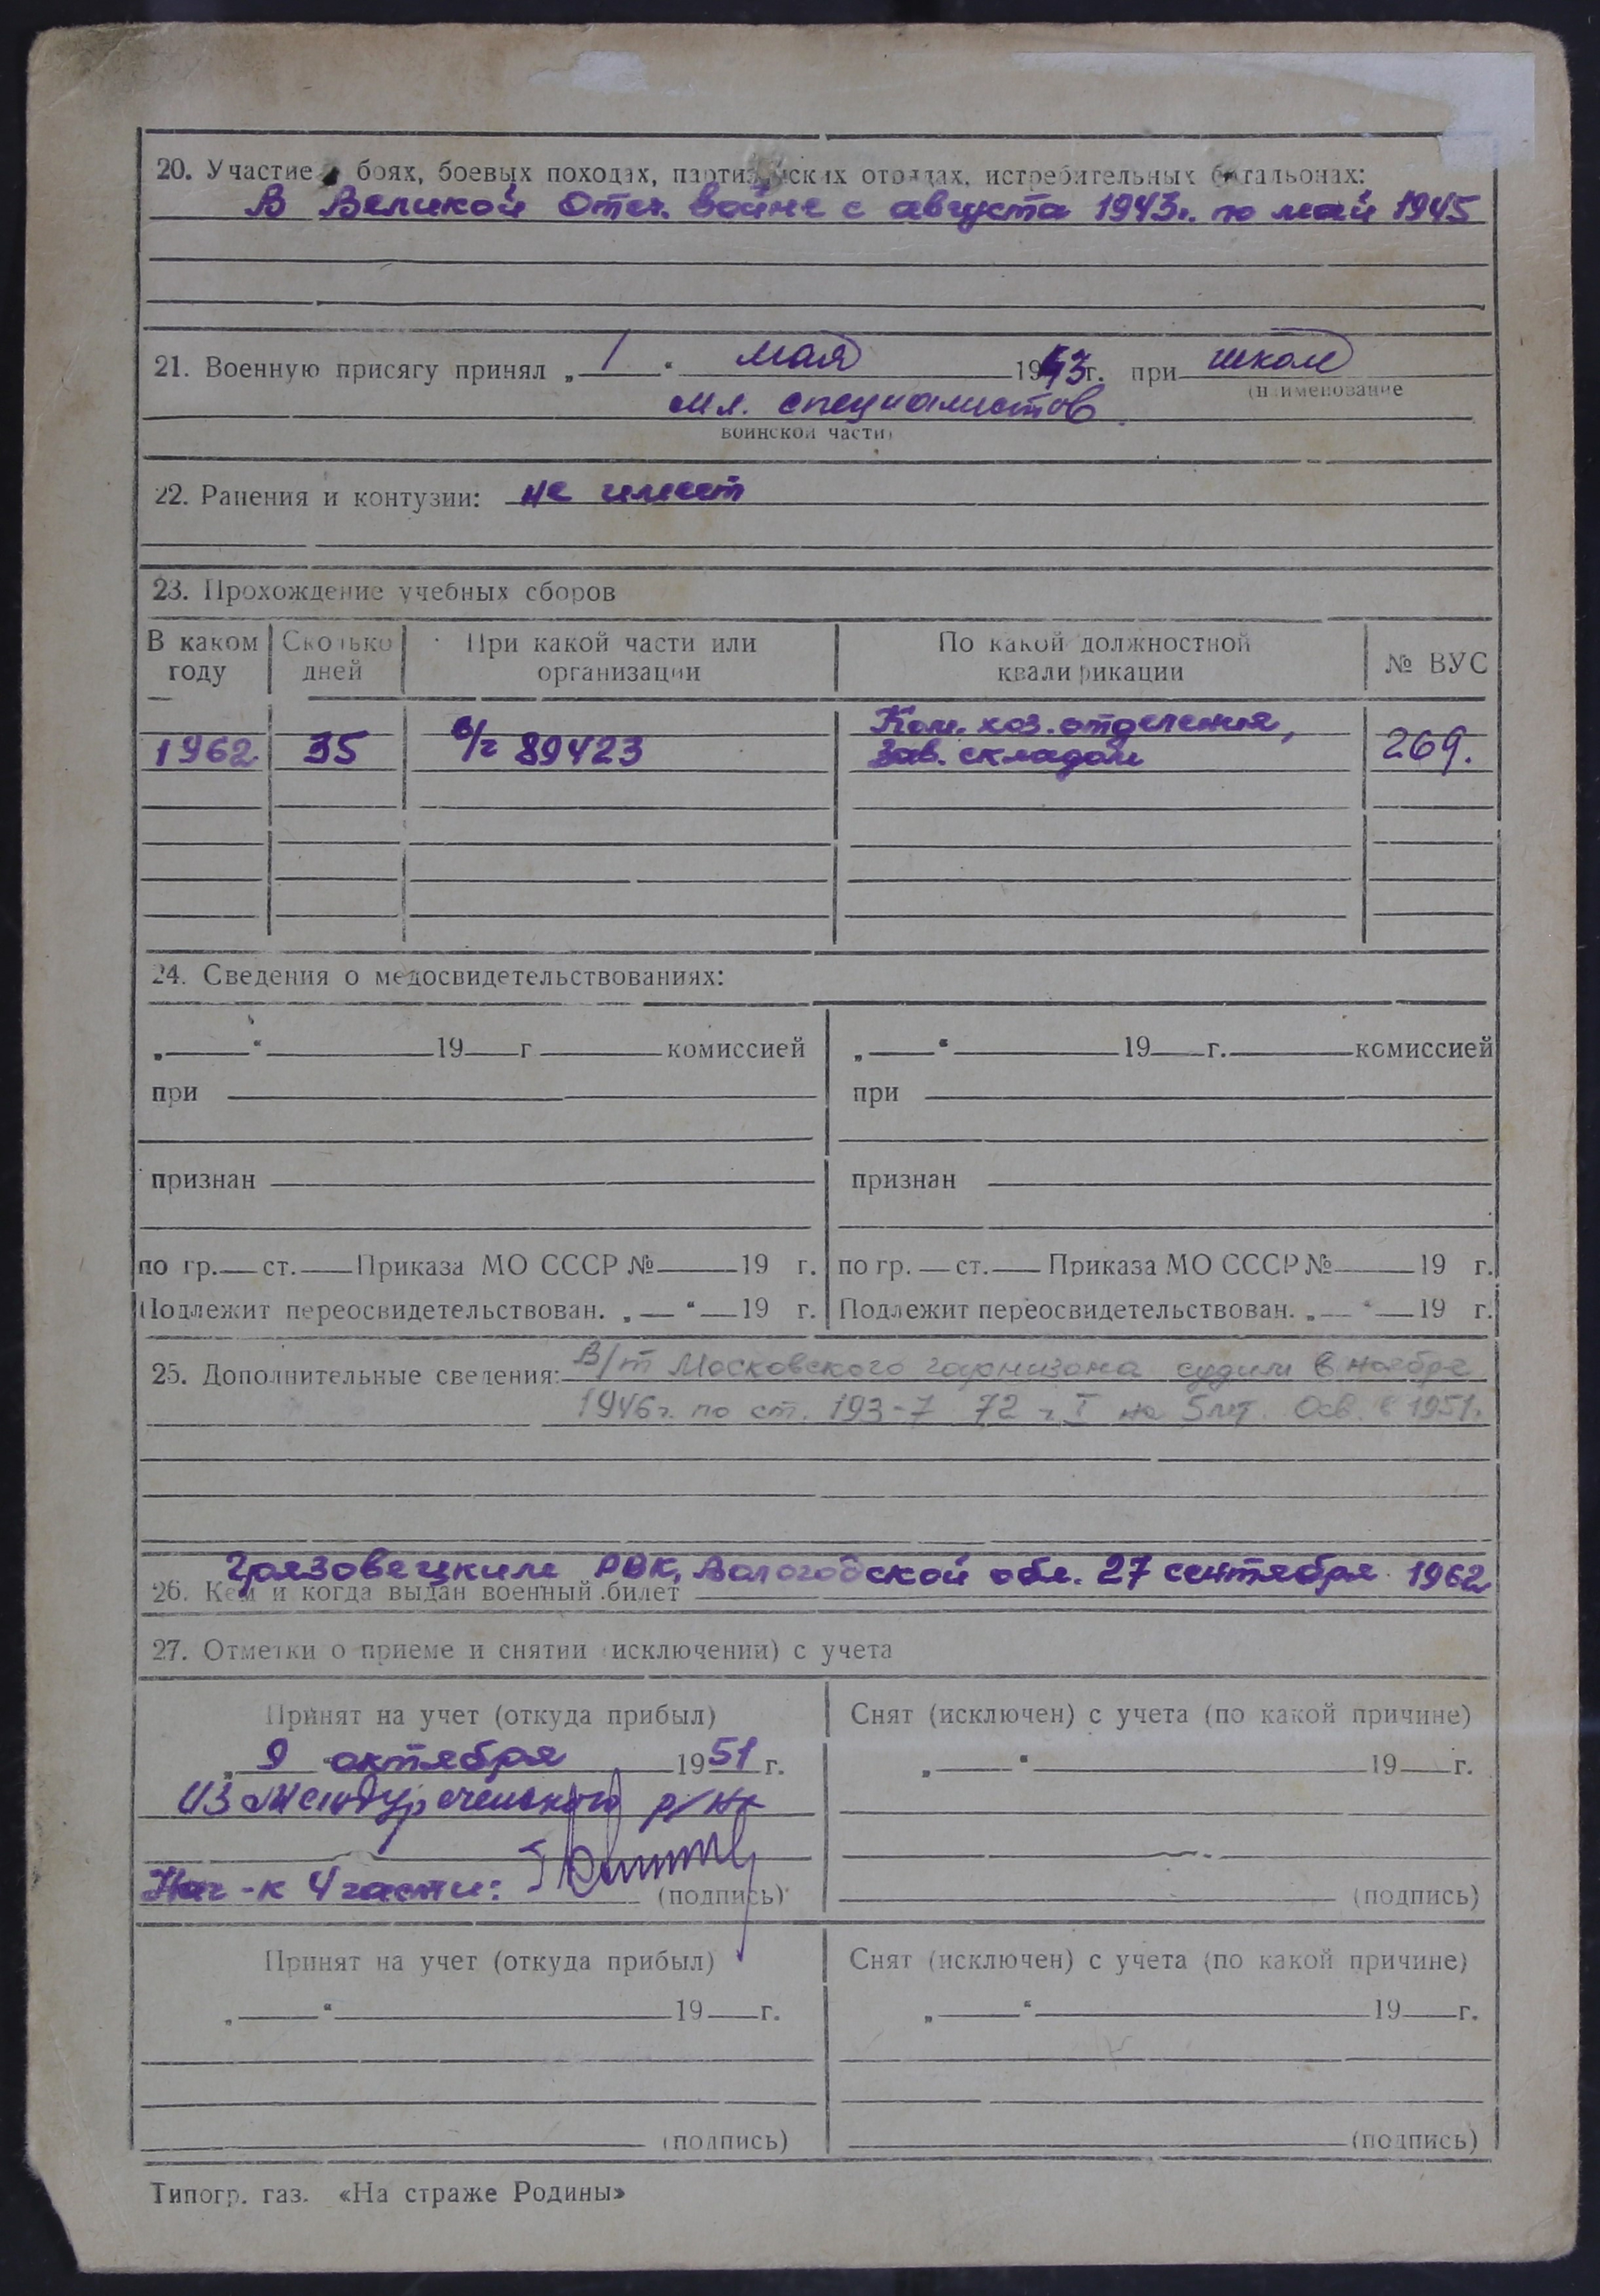 20. Участие в боях, боевых походах, партизанских отрядах, истребительных батальонах:
В Великой Отеч. войне с августа 1943г. по май 1945
21. Военную присягу принял „ 1 “ мая 1943 г. при школе
(наименование
мл. специалистов
воинской части)
22. Ранения и контузии: не имеет
23. Прохождение учебных сборов
В каком году Сколько дней При какой части или организации По какой должностной квалификации № ВУС
Ком. хоз. отделения,
1962 35 в/ч 89423 Зав. складом 269.
24. Сведения о медосвидетельствованиях:
„ “ 19 г комиссией „ “ 19 г. комиссией
при при
признан признан
по гр. ст. Приказа МО СССР № 19 г. по гр. ст. Приказа МО СССР № 19 г.
Подлежит переосвидетельствован. „ “ 19 г. Подлежит переосвидетельствован. „ “ 19 г.
25. Дополнительные сведения: В/т Московского гарнизона судим в ноябре
1946г. по ст. 193-7 72 ч I на 5 лет. Осв. в 1951г.
Грязовецким РВК, Вологодской обл. 27 сентября 1962
26. Кем и когда выдан военный билет
27. Отметки о приеме и снятии (исключении) с учета
Принят на учет (откуда прибыл) Снят (исключен) с учета (по какой причине)
„ 9 “ октября 1951 г. „ “ 19 г.
из Междуреченского р/на
Нач-к 4 части: (подпись) (подпись)
Принят на учет (откуда прибыл) Снят (исключен) с учета (по какой причине)
„ “ 19 г. „ “ 19 г.
(подпись) (подпись)
Типогр. газ. «На страже Родины»